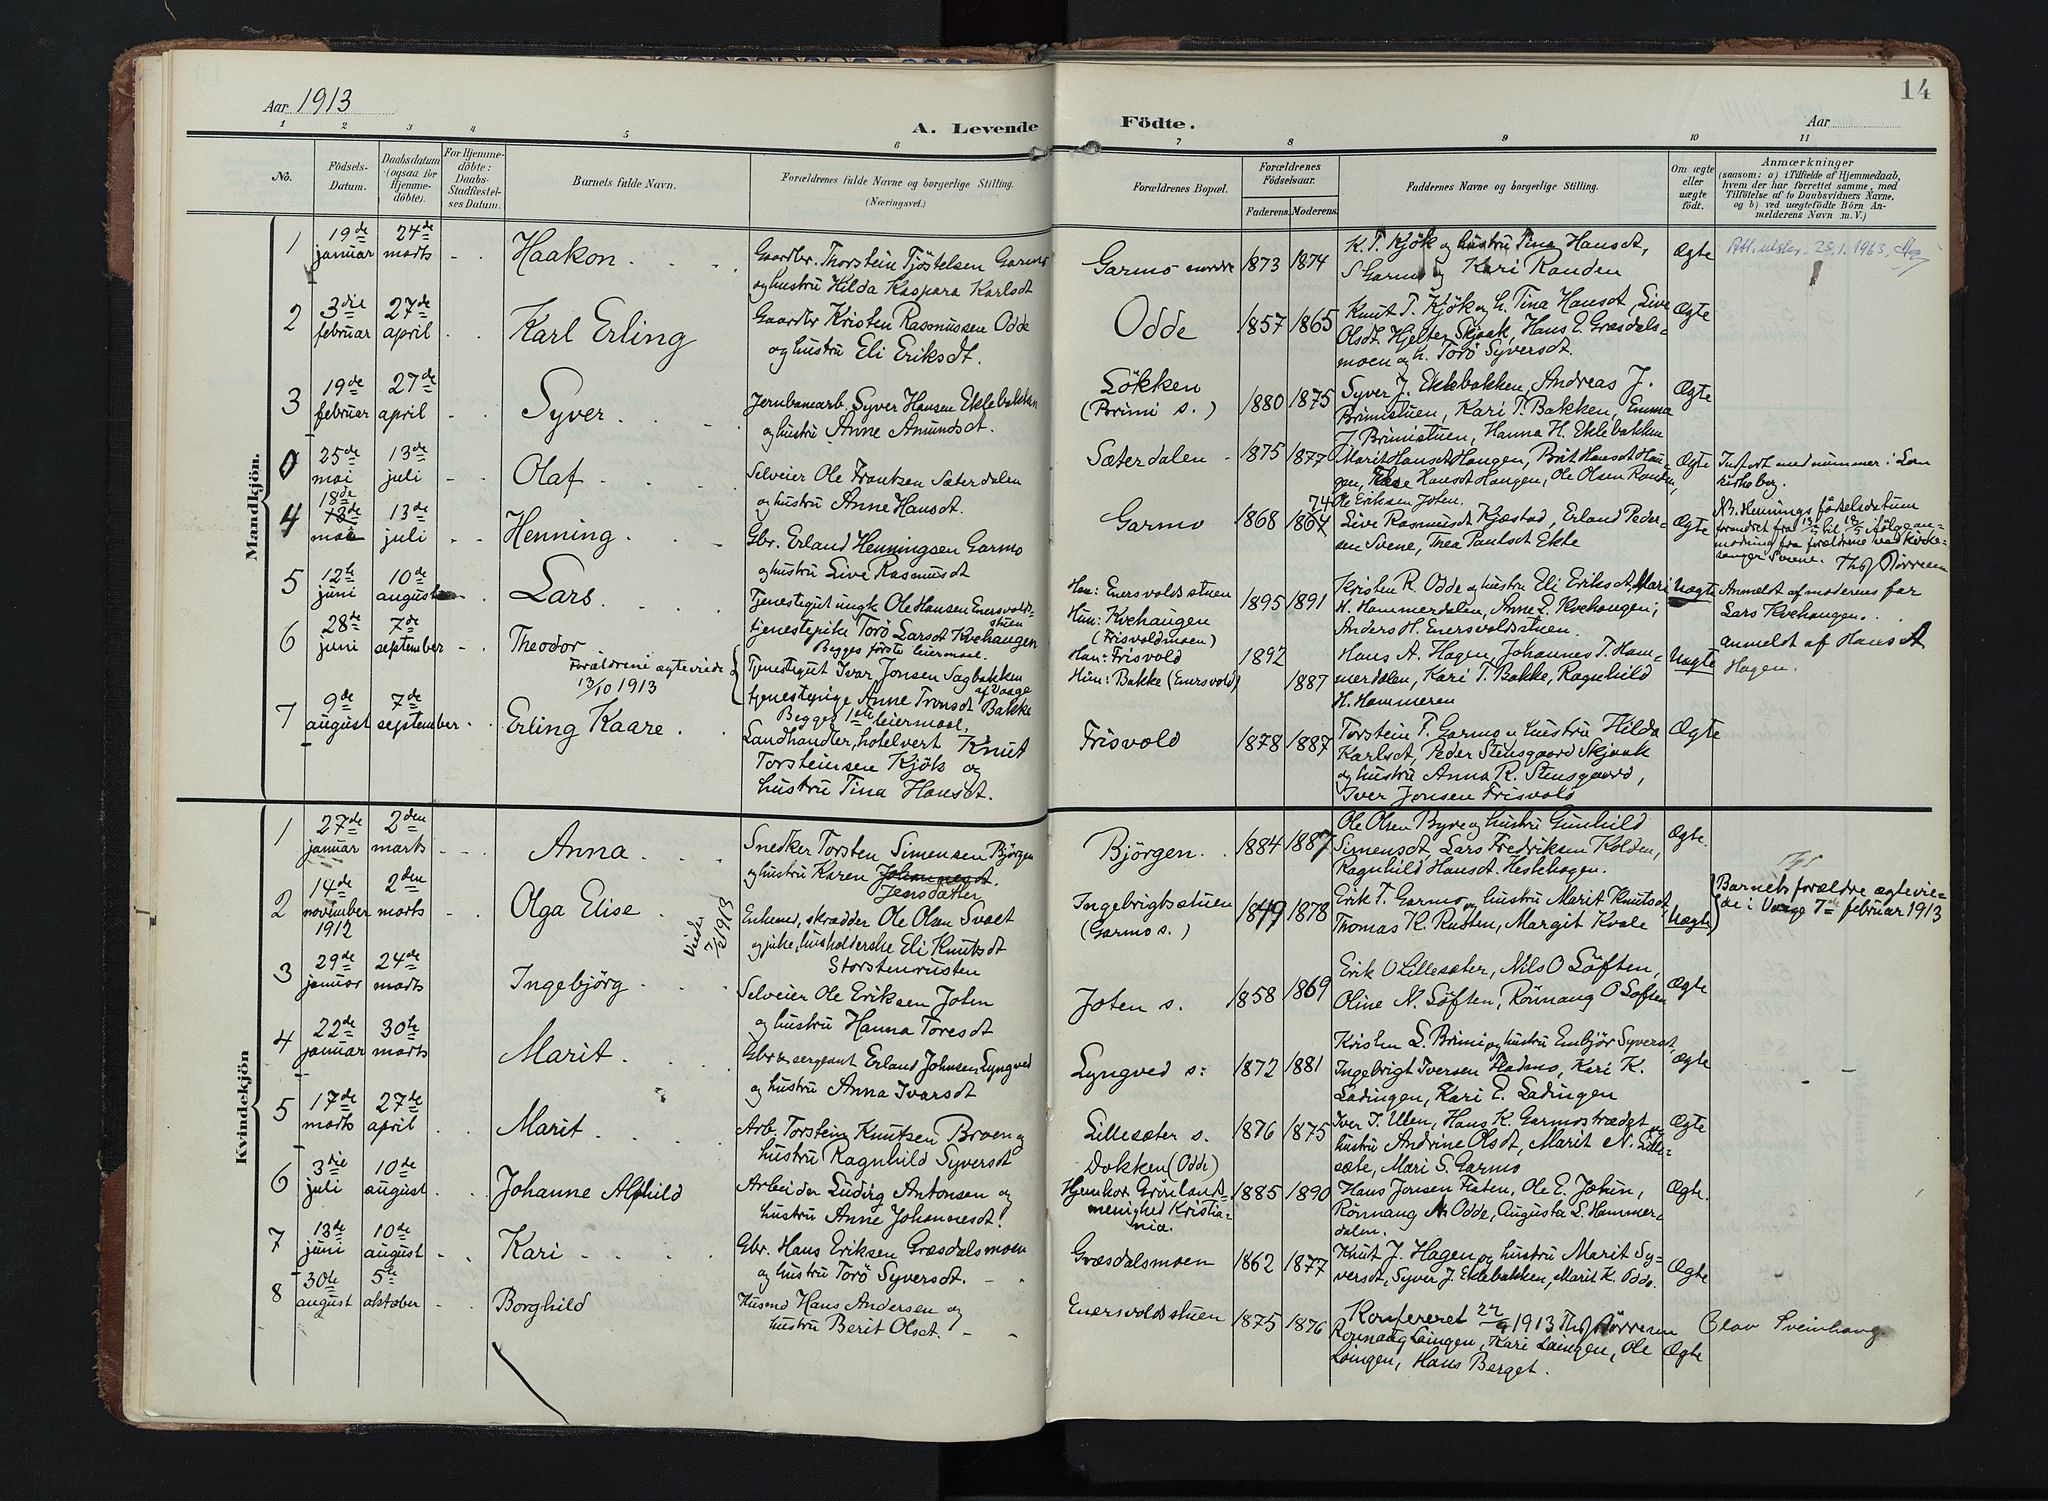 Aar 1913
A. Levende Födte.
14
Aar
1 2 3 4 5 6 7 8 9 10 11
No.
Födsels-Datum.
Daabsdatum (ogsaa for Hjemme-döbte).
For Hjemme-döbte: Daabs-Stadfæstel-ses Datum.
Barnets fulde Navn.
Forældrenes fulde Navne og borgerlige Stilling.
(Næringsvei.)
Forældrenes Bopæl.
Forældrenes Födselsaar.
Faderens. Moderens.
Faddernes Navne og borgerlige Stilling.
Om ægte eller uægte födt.
Anmærkninger
(saasom: a) i Tilfælde af Hjemmedaab,
hvem der har forrettet samme, med
Tilföielse af to Daabsvidners Navne,
og b) ved uægtefödte Börn An-
melderens Navn m. V.)
Mandkjön.
1 19de januar 24de marts Haakon
Gaardbr. Thorstein Tjöstelsen Garmo
og hustru Hilda Kaspara Karlsdt
Garmo nordre 1873 1874
K. T. Kjök og hustru Tina Hansdt,
S Garmo og Kari Randen
Ægte
23.1.1963
2 3die februar 27de april Karl Erling
Gaardbr Kristen Rasmussen Odde
og hustru Eli Eriksdt.
Odde 1857 1865
Knut T. Kjök og h. Tina Hansdt, Live
Olsdt. Hjelter Skjaak, Hans E. Græsdals-
moen og h. Torö Syversdt.
Ægte
3 19de februar 27de april Syver
Jernbanearb. Syver Hansen Eklebakken
og hustru Anne Amundsdt.
Lökken
(Brimi s.) 1880 1875
Syver J. Eklebakken, Andreas J.
Brimistuen, Kari T. Bakken, Emma
J. Brimistuen, Hanna H. Eklebakken
Ægte
0 25de mai 13de juli Olaf
Selveier Ole Frantsen Sæterdalen
og hustru Anne Hansdt.
Sæterdalen 1875 1877
Marit Hansdt Haugen, Brit Hansdt Hau-
gen, Hansdt Haugen, Ole Olsen Randen,
Ole Eriksen Joten.
Ægte
Indfört med nummer i Lom
kirkebog.
4 18de 13de mai 13de juli Henning
Gbr. Erland Henningsen Garmo
og hustru Live Rasmusdt
Garmo 1868 1867 74
Live Rasmusdt Kjæstad, Erland Peder-
sen Svene, Thea Paulsdt Ekte
Ægte
NB. Hennings födseledatum
forandret fra 13/5 til 18/5 ifölge an-
modning fra forældrene ved kirke-
sanger Svene. Ths Nörresen
5 12te juni 10de august Lars
Tjenestegut ungk. Ole Hansen Enersvolds-
stuen
tjenestepike Torö Larsdt Kvehaugen
Begges förste leiermaal.
Han: Enersvoldsstuen
Hun: Kvehaugen
(Frisvoldmoen) 1895 1891
Kristen R. Odde og hustru Eli Eriksdt, Mari
H. Hammerdalen, Anne L. Kvehaugen,
Anders H. Enersvoldsstuen.
Uægte
Anmeldt af moderens far
Lars Kvehaugen.
6 28de juni 7de september Theodor
Forældrene ægteviede
13/10 1913
Tjenestegut Ivar Jonsen Sagbakken
af Vaage
tjenestepige Anne Tronsdt Bakke
Begges 1ste leiermaal.
Han: Frisvold
Hun: Bakke (Enersvold) 1892 1887
Hans A. Hagen, Johannes T. Ham-
merdalen, Kari T. Bakke, Ragnhild
H. Hammeren
Uægte
anmeldt af Hans A
Hagen.
7 9de august 7de september Erling Kaare.
Landhandler, hotelvert Knut
Torsteinsen Kjök og
hustru Tina Hansdt.
Frisvold 1878 1887
Torstein T. Garmo og hustru Hilda
Karlsdt, Peder Stensgaard Skjaak
og hustru Anna R. Stensgaard,
Iver Jonsen Frisvold
Ægte
Kvindekjön
1 27de januar 2den marts Anna
Snedker Torsten Simensen Björgen
og hustru Karen Johannesdt.
Jensdatter
Björgen 1884 1887
Ole Olsen Byre og hustru Gunhild
Simensdt, Lars Fredriksen Kolden,
Ragnhild Hansdt. Hestehagen.
Ægte.
2 14de november 1912 2den marts Olga Elise
Viede 7/2 1913
Enkemd, skrædder Ole Olsen Svalt
og pike, husholderske Eli Knutsdt
Storstenrusten
Ingebrigtsstuen
(Garmo s.) 1849 1878
Erik T. Garmo og hustru Marit Knutsdt,
Thomas K. Rusten, Margit Kvale
Uægte
Barnets forældre ægtevie-
de i Vaage 7de februar 1913
3 29de januar 24de marts Ingebjörg
Selveier Ole Eriksen Joten
og hustru Hanna Toresdt
Joten s. 1858 1869
Erik O Lillesæter, Nils O Löften,
Oline N. Löften, Rönnaug O Loften
Ægte
4 22de januar 30te marts Marit
Gbr & sergeant Erland Johnsen Lyngved
og hustru Anna Ivarsdt
Lyngved s: 1872 1881
Kristen L. Brimi og hustru Embjör Syversdt
Ingebrigt Iversen Flademo, Kari K.
Ladingen, Kari E. Ladingen
Ægte
5 17de marts 27de april Marit
Arb. Torstein Knutsen Broen og
hustru Ragnhild Syversdt
Lillesæter s. 1876 1875
Iver I. Ulen, Hans K. Garmostrædet og
hustru Andrine Olsdt, Marit N. Lille-
sæte, Mari S. Garmo
Ægte
6 3die juli 10de august Johanne Alfhild
Arbeider Ludvig Antonsen og
hustru Anne Johannesdt.
Dokken (Odde)
Hjemhör. Grönlands-
menighed Kristia-
nia. 1885 1890
Hans Jonsen Flaten, Ole E. Johun,
Rönnaug N. Odde, Augusta L. Hammer-
dalen.
Ægte.
7 13de juni 10de august Kari
Gbr. Hans Eriksen Græsdalsmoen
og hustru Torö Syversdt.
Græsdalsmoen 1862 1877
Knut J. Hagen og hustru Marit Sy-
versdt, Syver J. Eklebakken, Marit K. Odde.
Ægte
8 30te august 5te oktober Borghild
Husmd Hans Andersen og
hustru Berit Olsdt.
Enersvoldsstuen 1875 1876
Konfereret 22/9 1913 Ths Nörresen
Rönnaug Laingen, Kari Laingen, Ole
Laingen, Hans Berget.
Ægte
Olav Sveinhaug